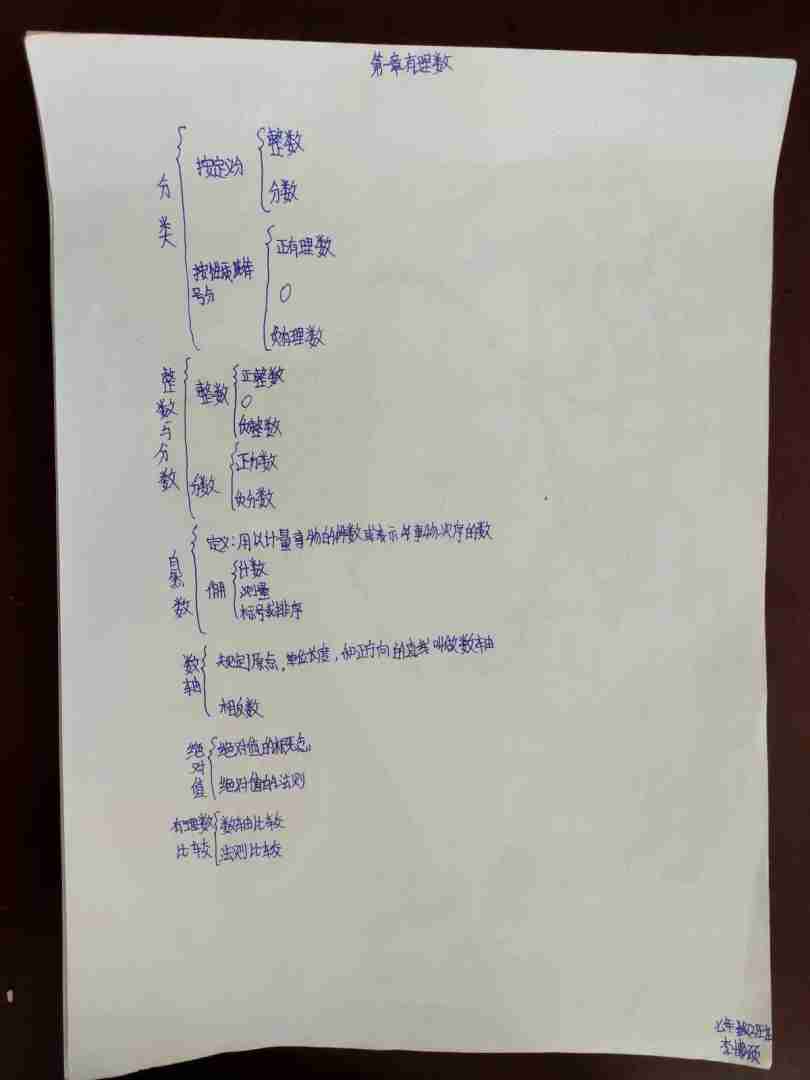 第一章有理数
分类
按定义分
整数
分数
按性质符
号分
正有理数
0
负有理数
整数与分数
整数
正整数
0
负整数
分数
正分数
负分数
自然数
定义:用以计量事物的件数或表示事物次序的数
作用
计数
测量
标号或排序
数轴
规定了原点,单位长度,和正方向的直线叫做数轴
相反数
绝对值
绝对值的概念
绝对值的法则
有理数
比较
数轴比较
法则比较